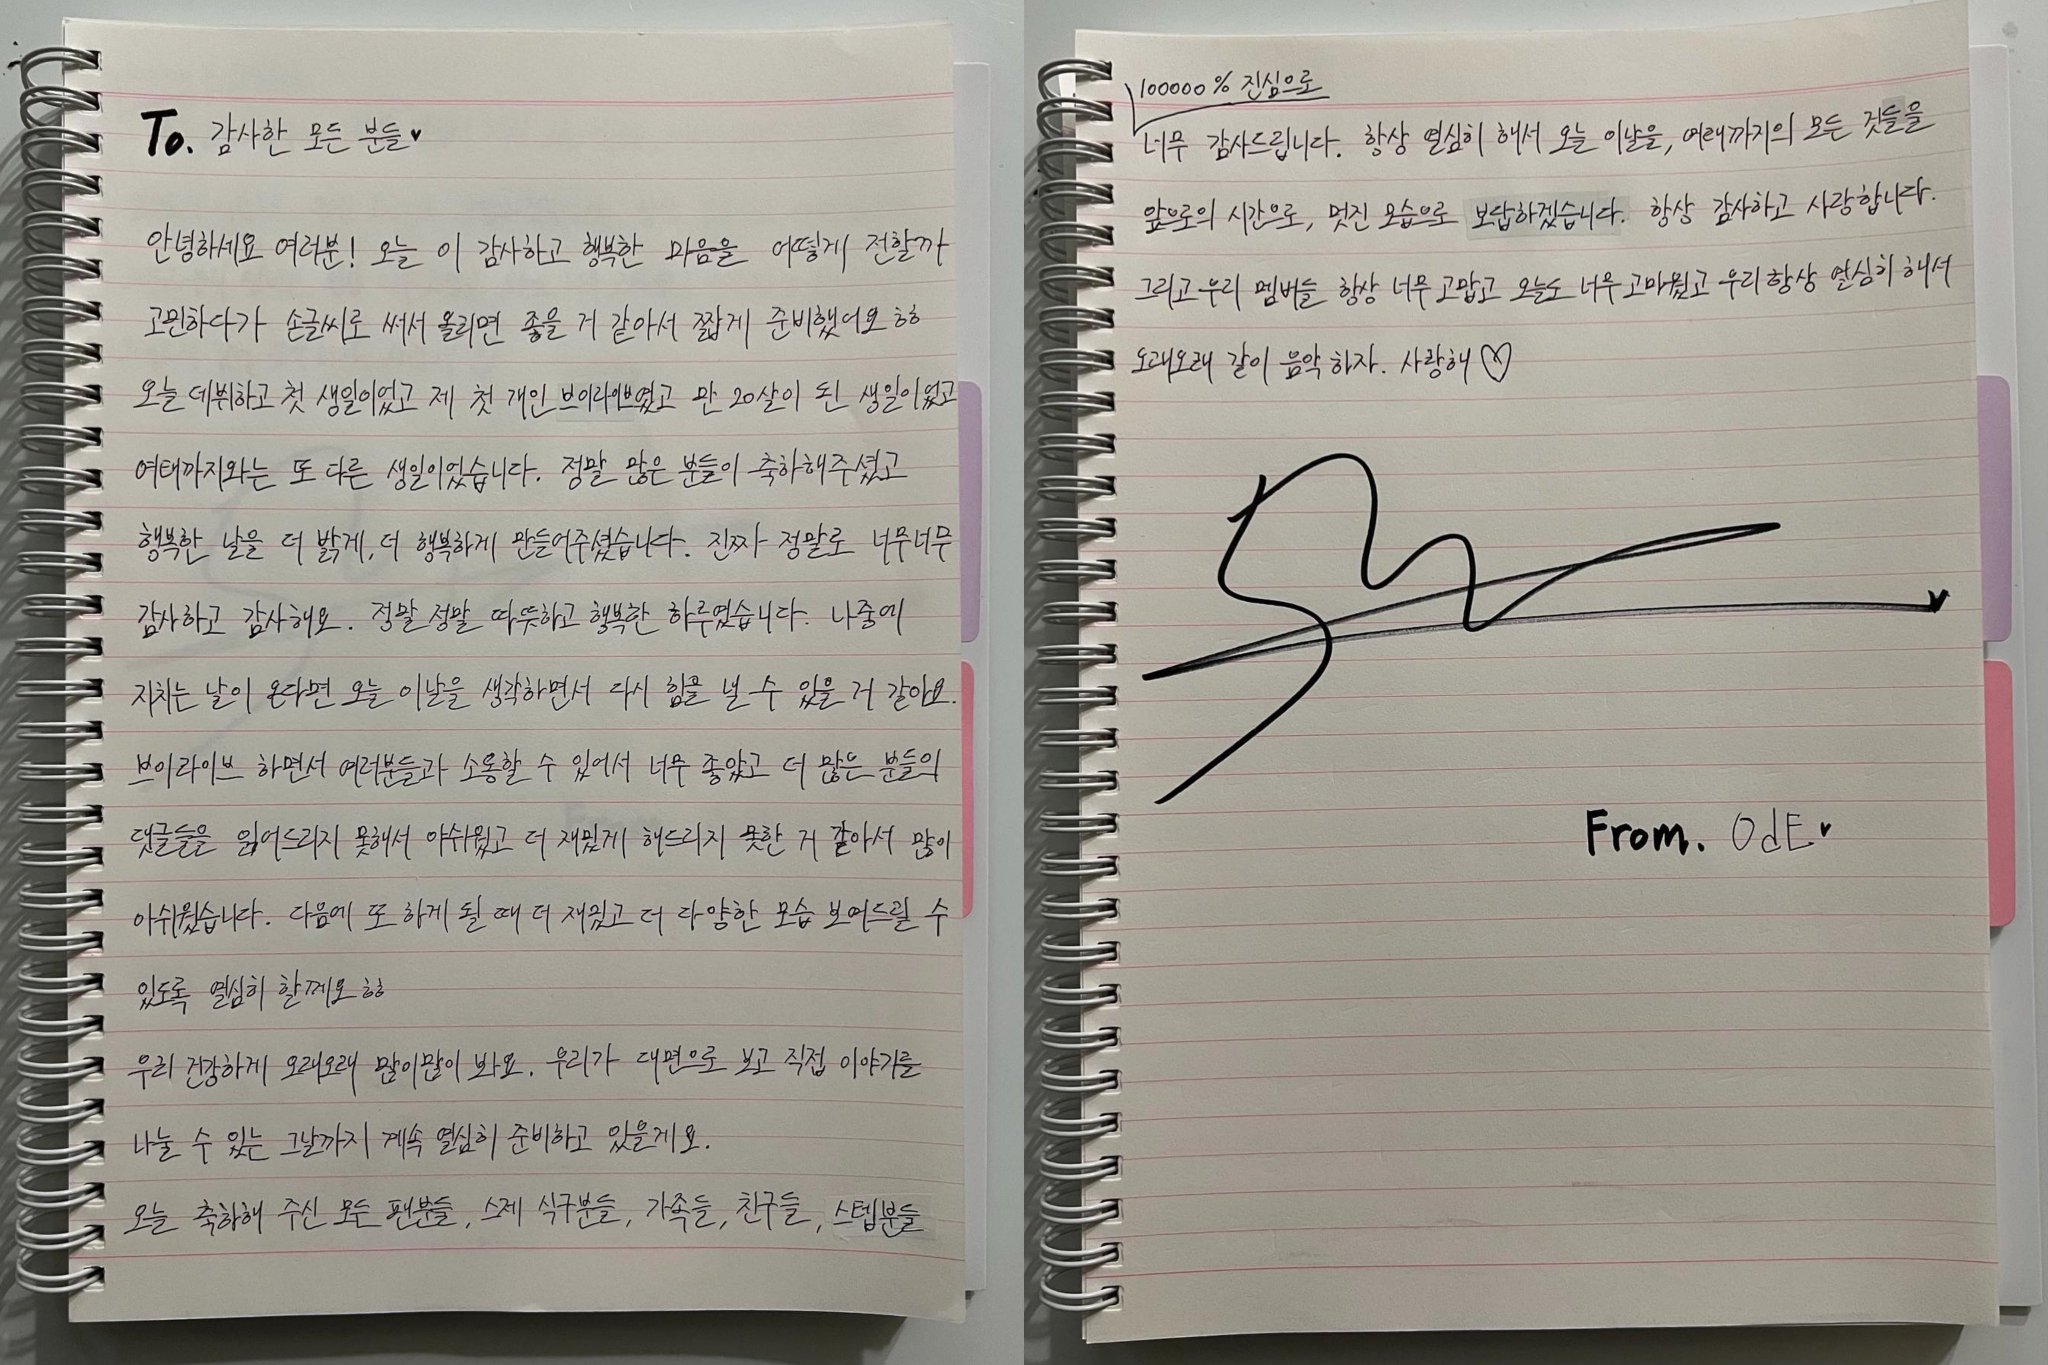 To. 감사한 모든 분들♥
안녕하세요 여러분! 오늘 이 감사하고 행복한 마음을 어떻게 전할까
고민하다가 손글씨로 써서 올리면 좋을 거 같아서 짧게 준비했어요ㅎㅎ
오늘 데뷔하고 첫 생일이었고 제 첫 개인 브이라이브였고 만 20살이 된 생일이었고
여태까지와는 또 다른 생일이었습니다. 정말 많은 분들이 축하해주셨고
행복한 날을 더 밝게, 더 행복하게 만들어주셨습니다. 진짜 정말로 너무너무
감사하고 감사해요. 정말 정말 따뜻하고 행복한 하루였습니다. 나중에
지치는 날이 온다면 오늘 이날을 생각하면서 다시 힘을 낼 수 있을 거 같아요.
브이라이브 하면서 여러분들과 소통할 수 있어서 너무 좋았고 더 많은 분들의
댓글들을 읽어드리지 못해서 아쉬웠고 더 재밌게 해드리지 못한 거 같아서 많이
아쉬웠습니다. 다음에 또 하게 될 때 더 재밌고 더 다양한 모습 보여드릴 수
있도록 열심히 할께요ㅎㅎ
우리 건강하게 오래오래 많이많이 봐요. 우리가 대면으로 보고 직접 이야기를
나눌 수 있는 그날까지 계속 열심히 준비하고 있을게요.
오늘 축하해 주신 모든 팬분들, 스제 식구분들, 가족들, 친구들, 스텝분들
100000% 진심으로
너무 감사드립니다. 항상 열심히 해서 오늘 이날을, 여태까지의 모든 것들을
앞으로의 시간으로, 멋진 모습으로 보답하겠습니다. 항상 감사하고 사랑합니다.
그리고 우리 멤버들 항상 너무 고맙고 오늘도 너무 고마웠고 우리 항상 열심히 해서
오래오래 같이 음악 하자. 사랑해♡
From. OdE♥